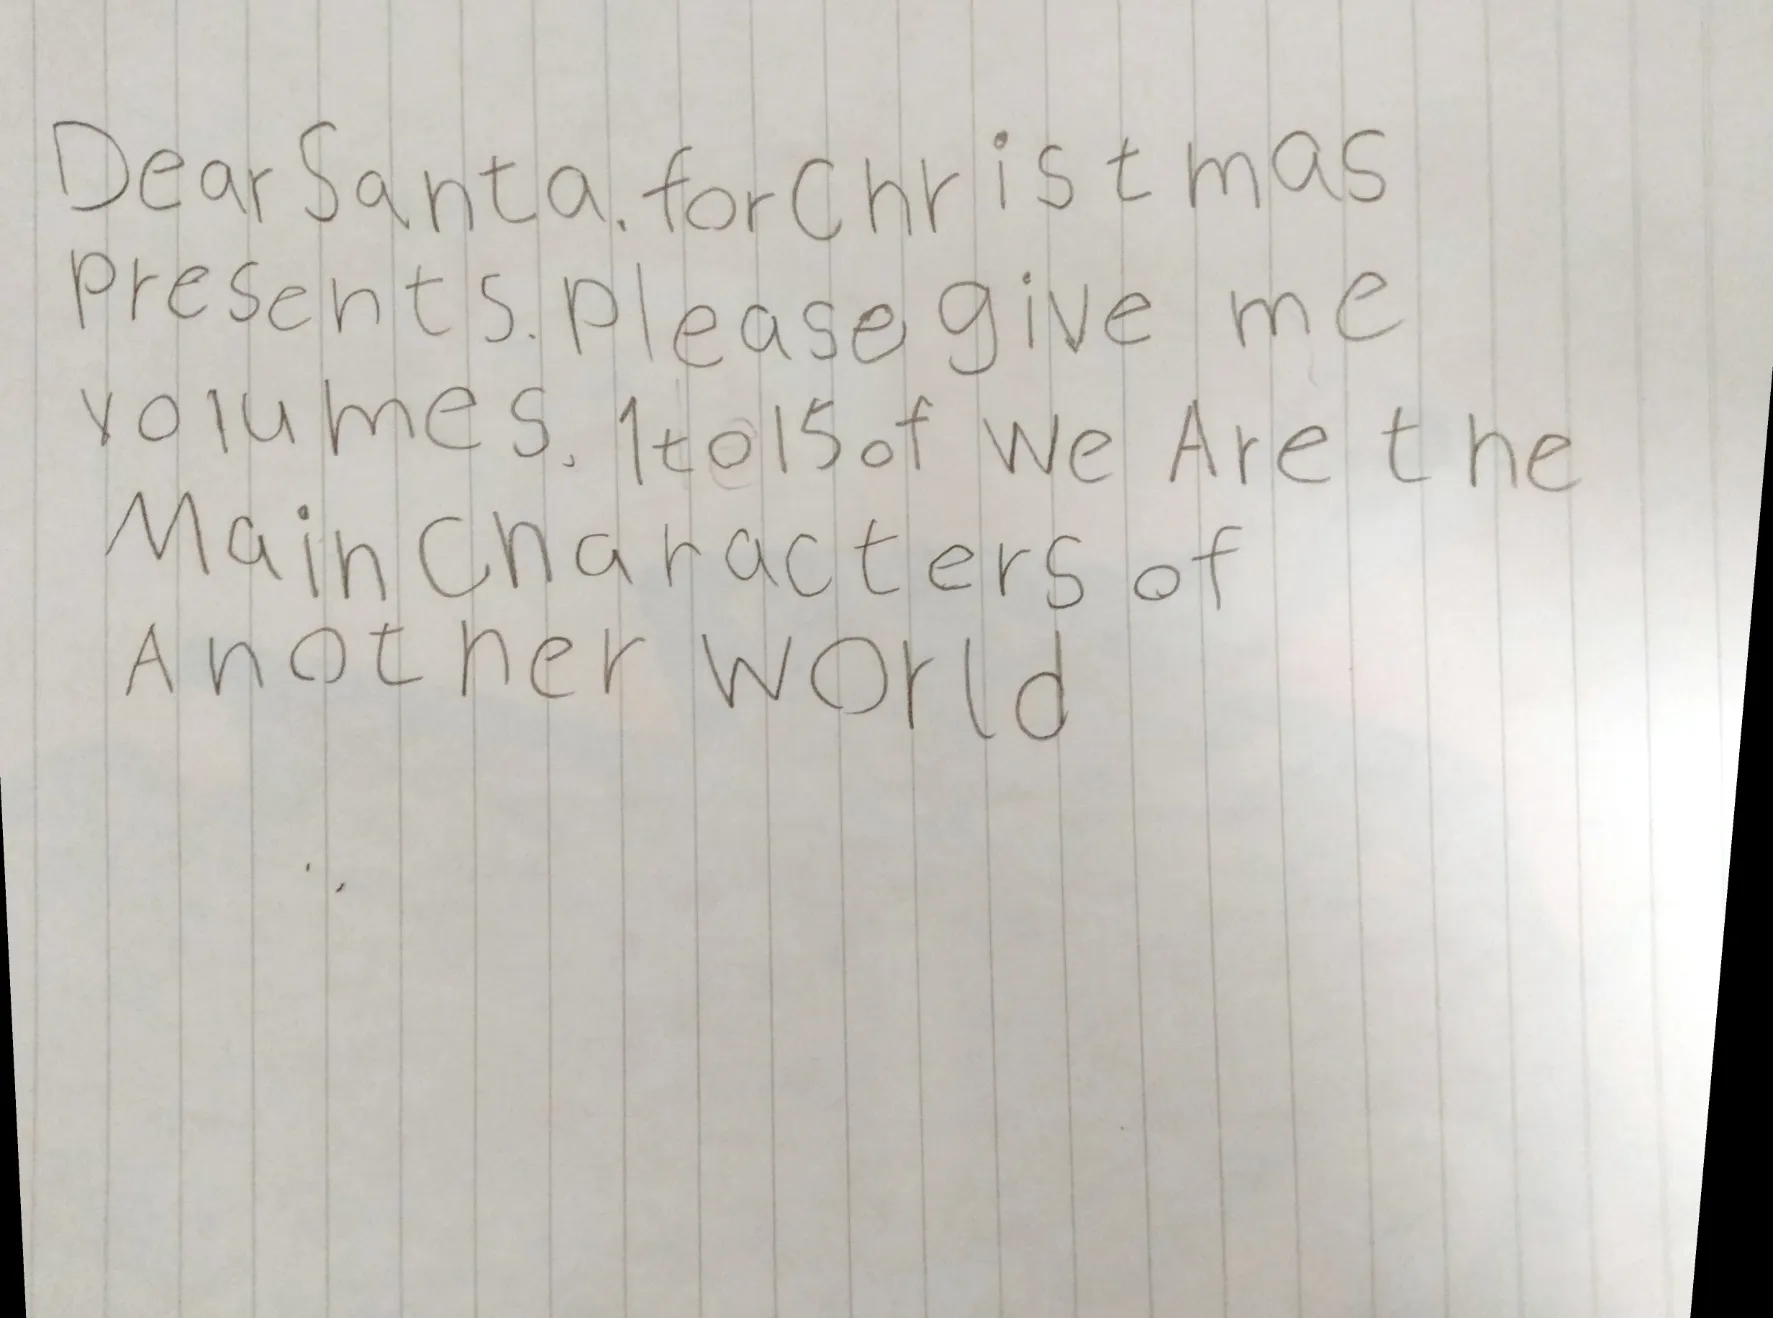 Dear Santa. for Christmas
presents. please give me
volumes. 1 to 15 of We Are the
Main Characters of
Another World